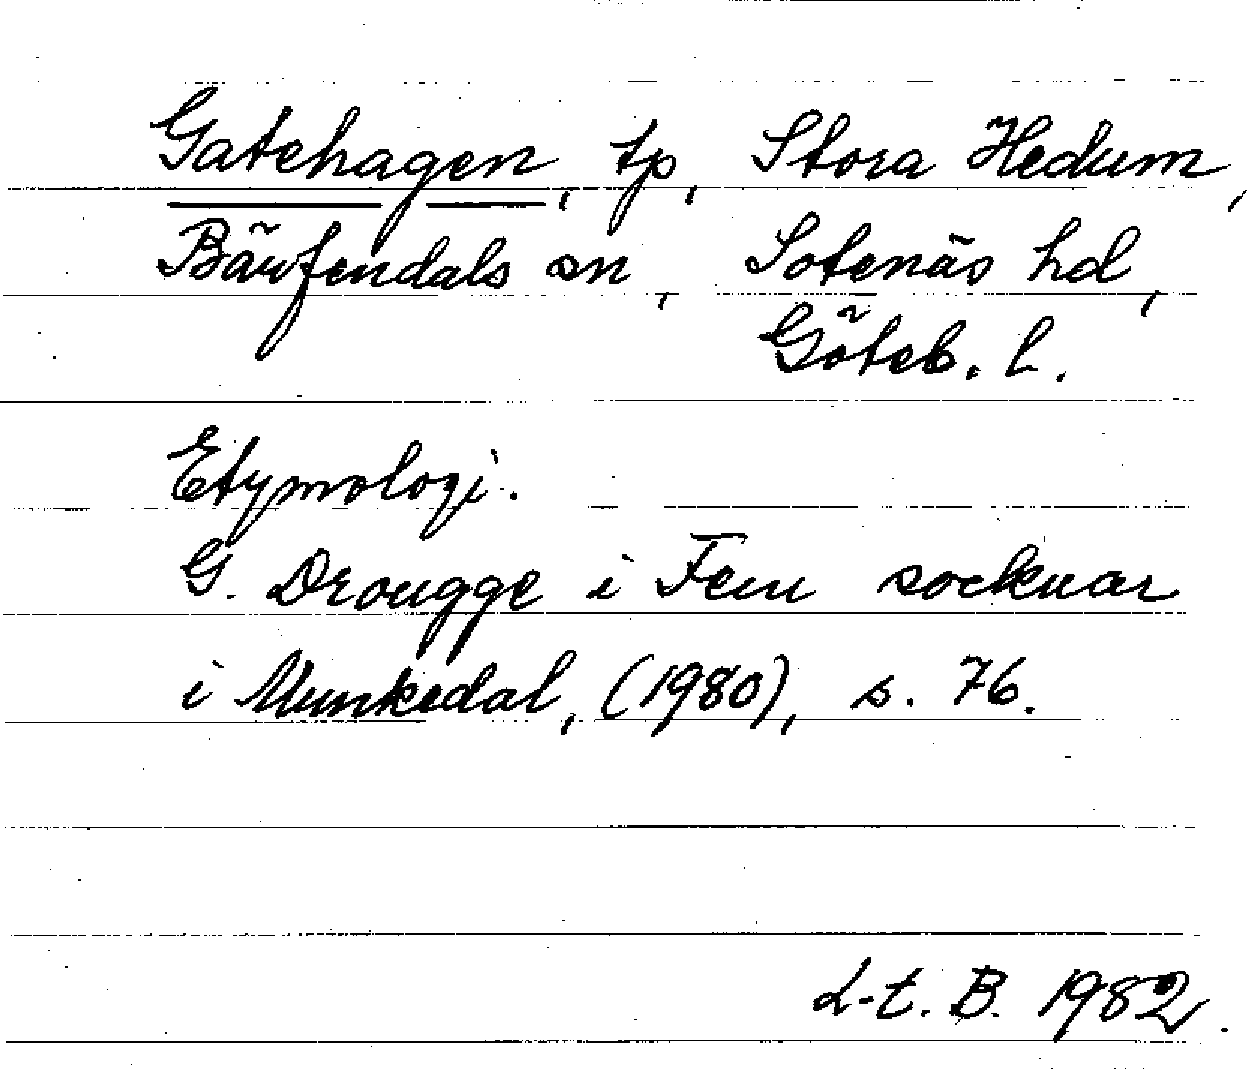 Gatehagen, tp, Stora Hedum,
Bärfendals sn, Sotenäs hd,
Göteb. l.
Etymologi.
G. Drougge i Fem socknar
i Munkedal, (1980), s. 76.
L-t. B. 1982.